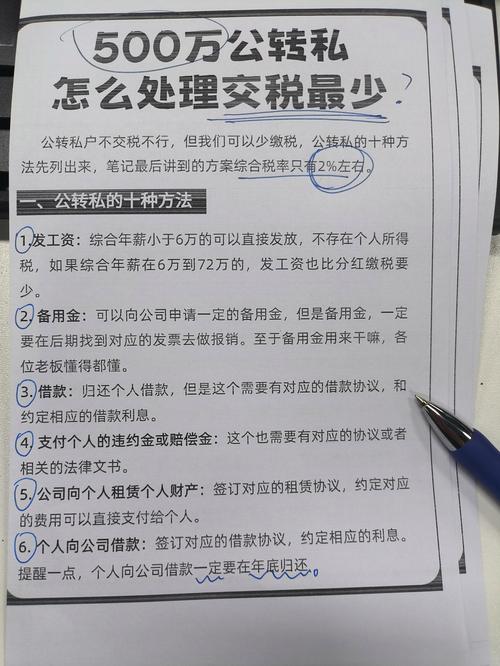 500万公转私
怎么处理交税最少?
公转私户不交税不行，但我们可以少缴税，公转私的十种方
法先列出来，笔记最后讲到的方案综合税率只有2%左右。
一、公转私的十种方法
1.发工资：综合年薪小于6万的可以直接发放，不存在个人所得
税，如果综合年薪在6万到72万的，发工资也比分红缴税要
少。
2.备用金：可以向公司申请一定的备用金，但是备用金，一定
要在后期找到对应的发票去做报销。至于备用金用来干嘛，各
位老板懂得都懂。
3.借款：归还个人借款，但是这个需要有对应的借款协议，和
约定相应的借款利息。
4.支付个人的违约金或赔偿金：这个也需要有对应的协议或者
相关的法律文书。
5.公司向个人租赁个人财产：签订对应的租赁协议，约定对应
的费用可以直接支付给个人。
6.个人向公司借款：签订对应的借款协议，约定相应的利息。
提醒一点，个人向公司借款一定要在年底归还。